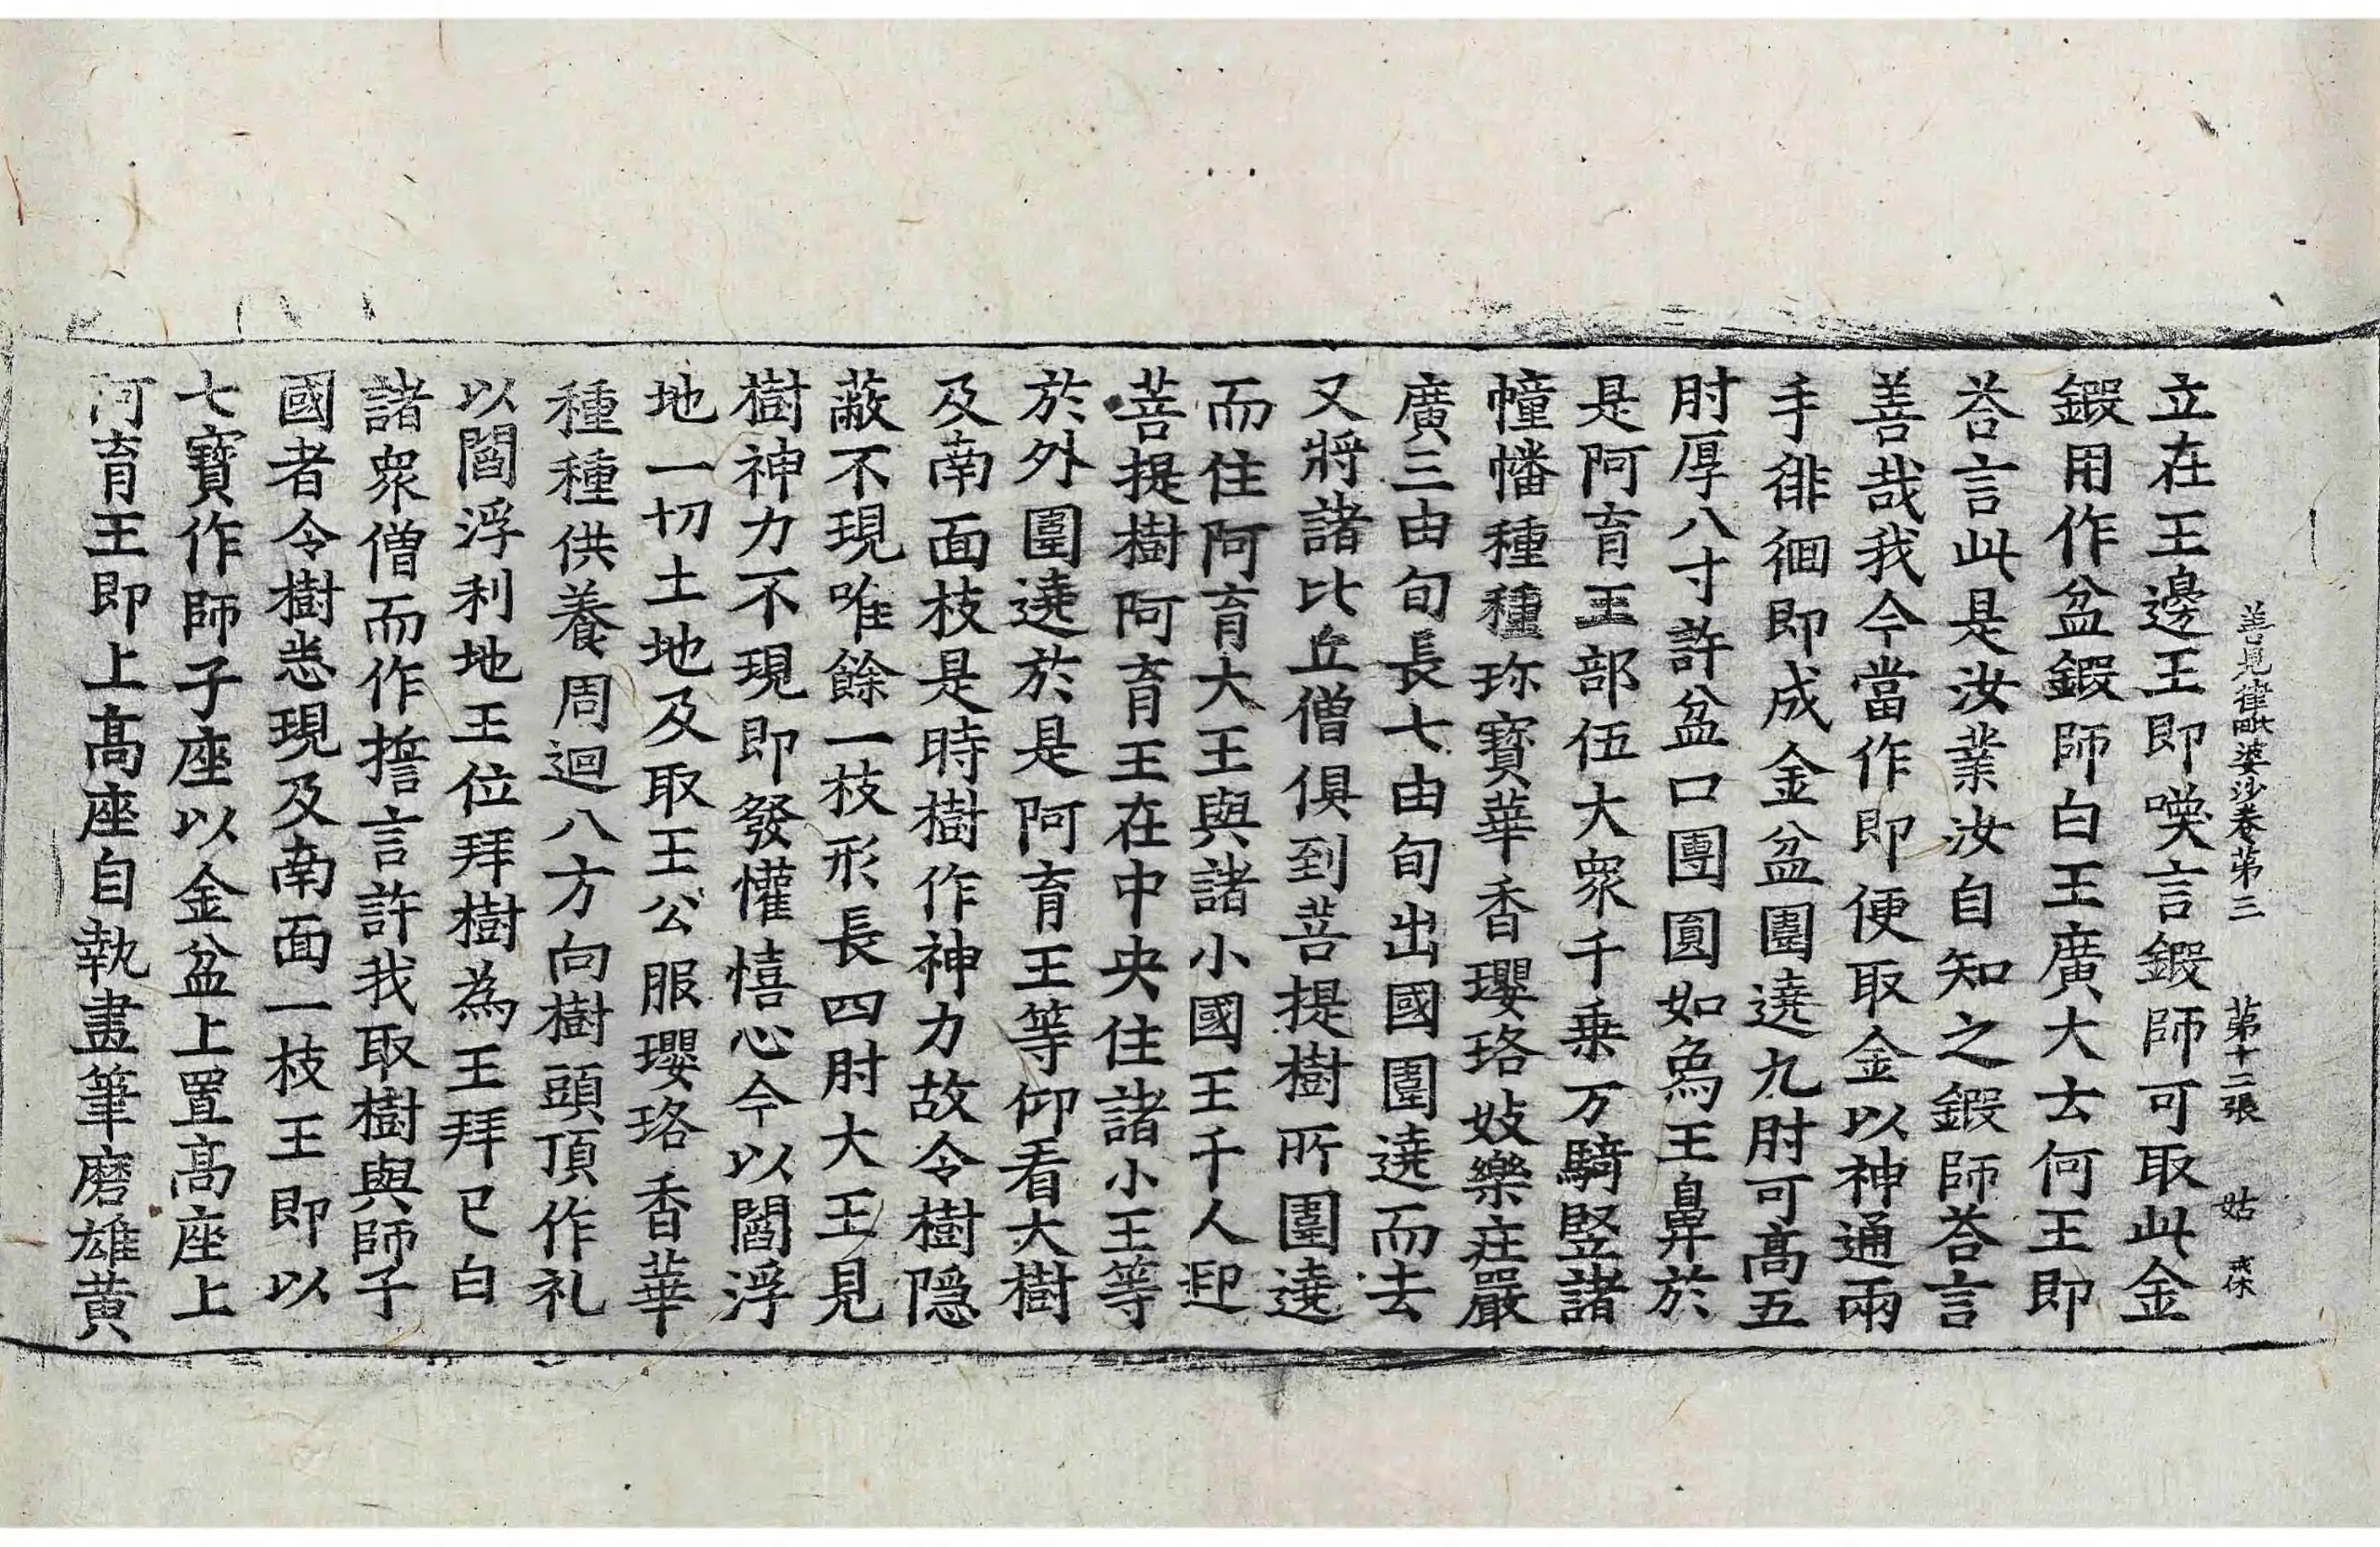 善見律毗婆沙卷苐三 苐十二張 姑 戒休
立在王邊王即嘆言鍜師可取此金
鍜用作盆鍜師白王廣大云何王即
荅言此是汝業汝自知之鍜師荅言
善哉我今當作即便取金以神通兩
手徘徊即成金盆圍遶九肘可高五
肘厚八寸許盆口團圓如象王鼻於
是阿育王部伍大衆千乗万騎竪諸
幢幡種種珎寳華香瓔珞妓樂庄嚴
廣三由旬長七由旬出國圍遶而去
又將諸比丘僧俱到菩提樹所圍遶
而住阿育大王與諸小國王千人迎
菩提樹阿育王在中央住諸小王等
於外圍遶於是阿育王等仰看大樹
及南面枝是時樹作神力故令樹隠
蔽不現唯餘一枝形長四肘大王見
樹神力不現即發懽憘心今以閻浮
地一切土地及取王公服瓔珞香華
種種供養周迴八方向樹頭頂作礼
以閻浮利地王位拜樹為王拜已白
諸衆僧而作誓言許我取樹與師子
國者令樹悉現及南面一枝王即以
七寳作師子座以金盆上置髙座上
阿育王即上髙座自執畫筆磨雄黄